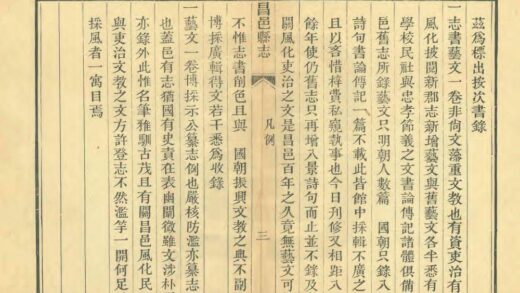 茲爲標出按次書錄
一志書藝文一卷非尙文藻重文教也有資吏治有
風化披閱新郡志新增藝文與舊藝文各半悉有
學校民社與忠孝節義之文書論傳記諸體俱備
邑舊志所錄藝文只明朝人數篇 國朝只錄入
詩句書論傳記一篇不載此皆館中採輯不廣之
且以吝惜梓費私窺執事也今日刋修又相距八
餘年使仍舊志只再增八景詩句而止並不錄及
關風化吏治之文是昌邑百年之久竟無藝文可
昌邑縣志
凡例
三
不惟志書削色且與 國朝振興文教之典不副
博採廣輯得文若干悉爲收錄
一藝文一卷博採示公墓志例也嚴核防濫亦墓志
也蓋邑有志猶國有史責在表幽闡微雖文涉朴
亦錄外此惟名筆雅馴古茂且有關昌邑風化民
與吏治文教之文方許登志不然濫竽一開何足
採風者一寓目焉